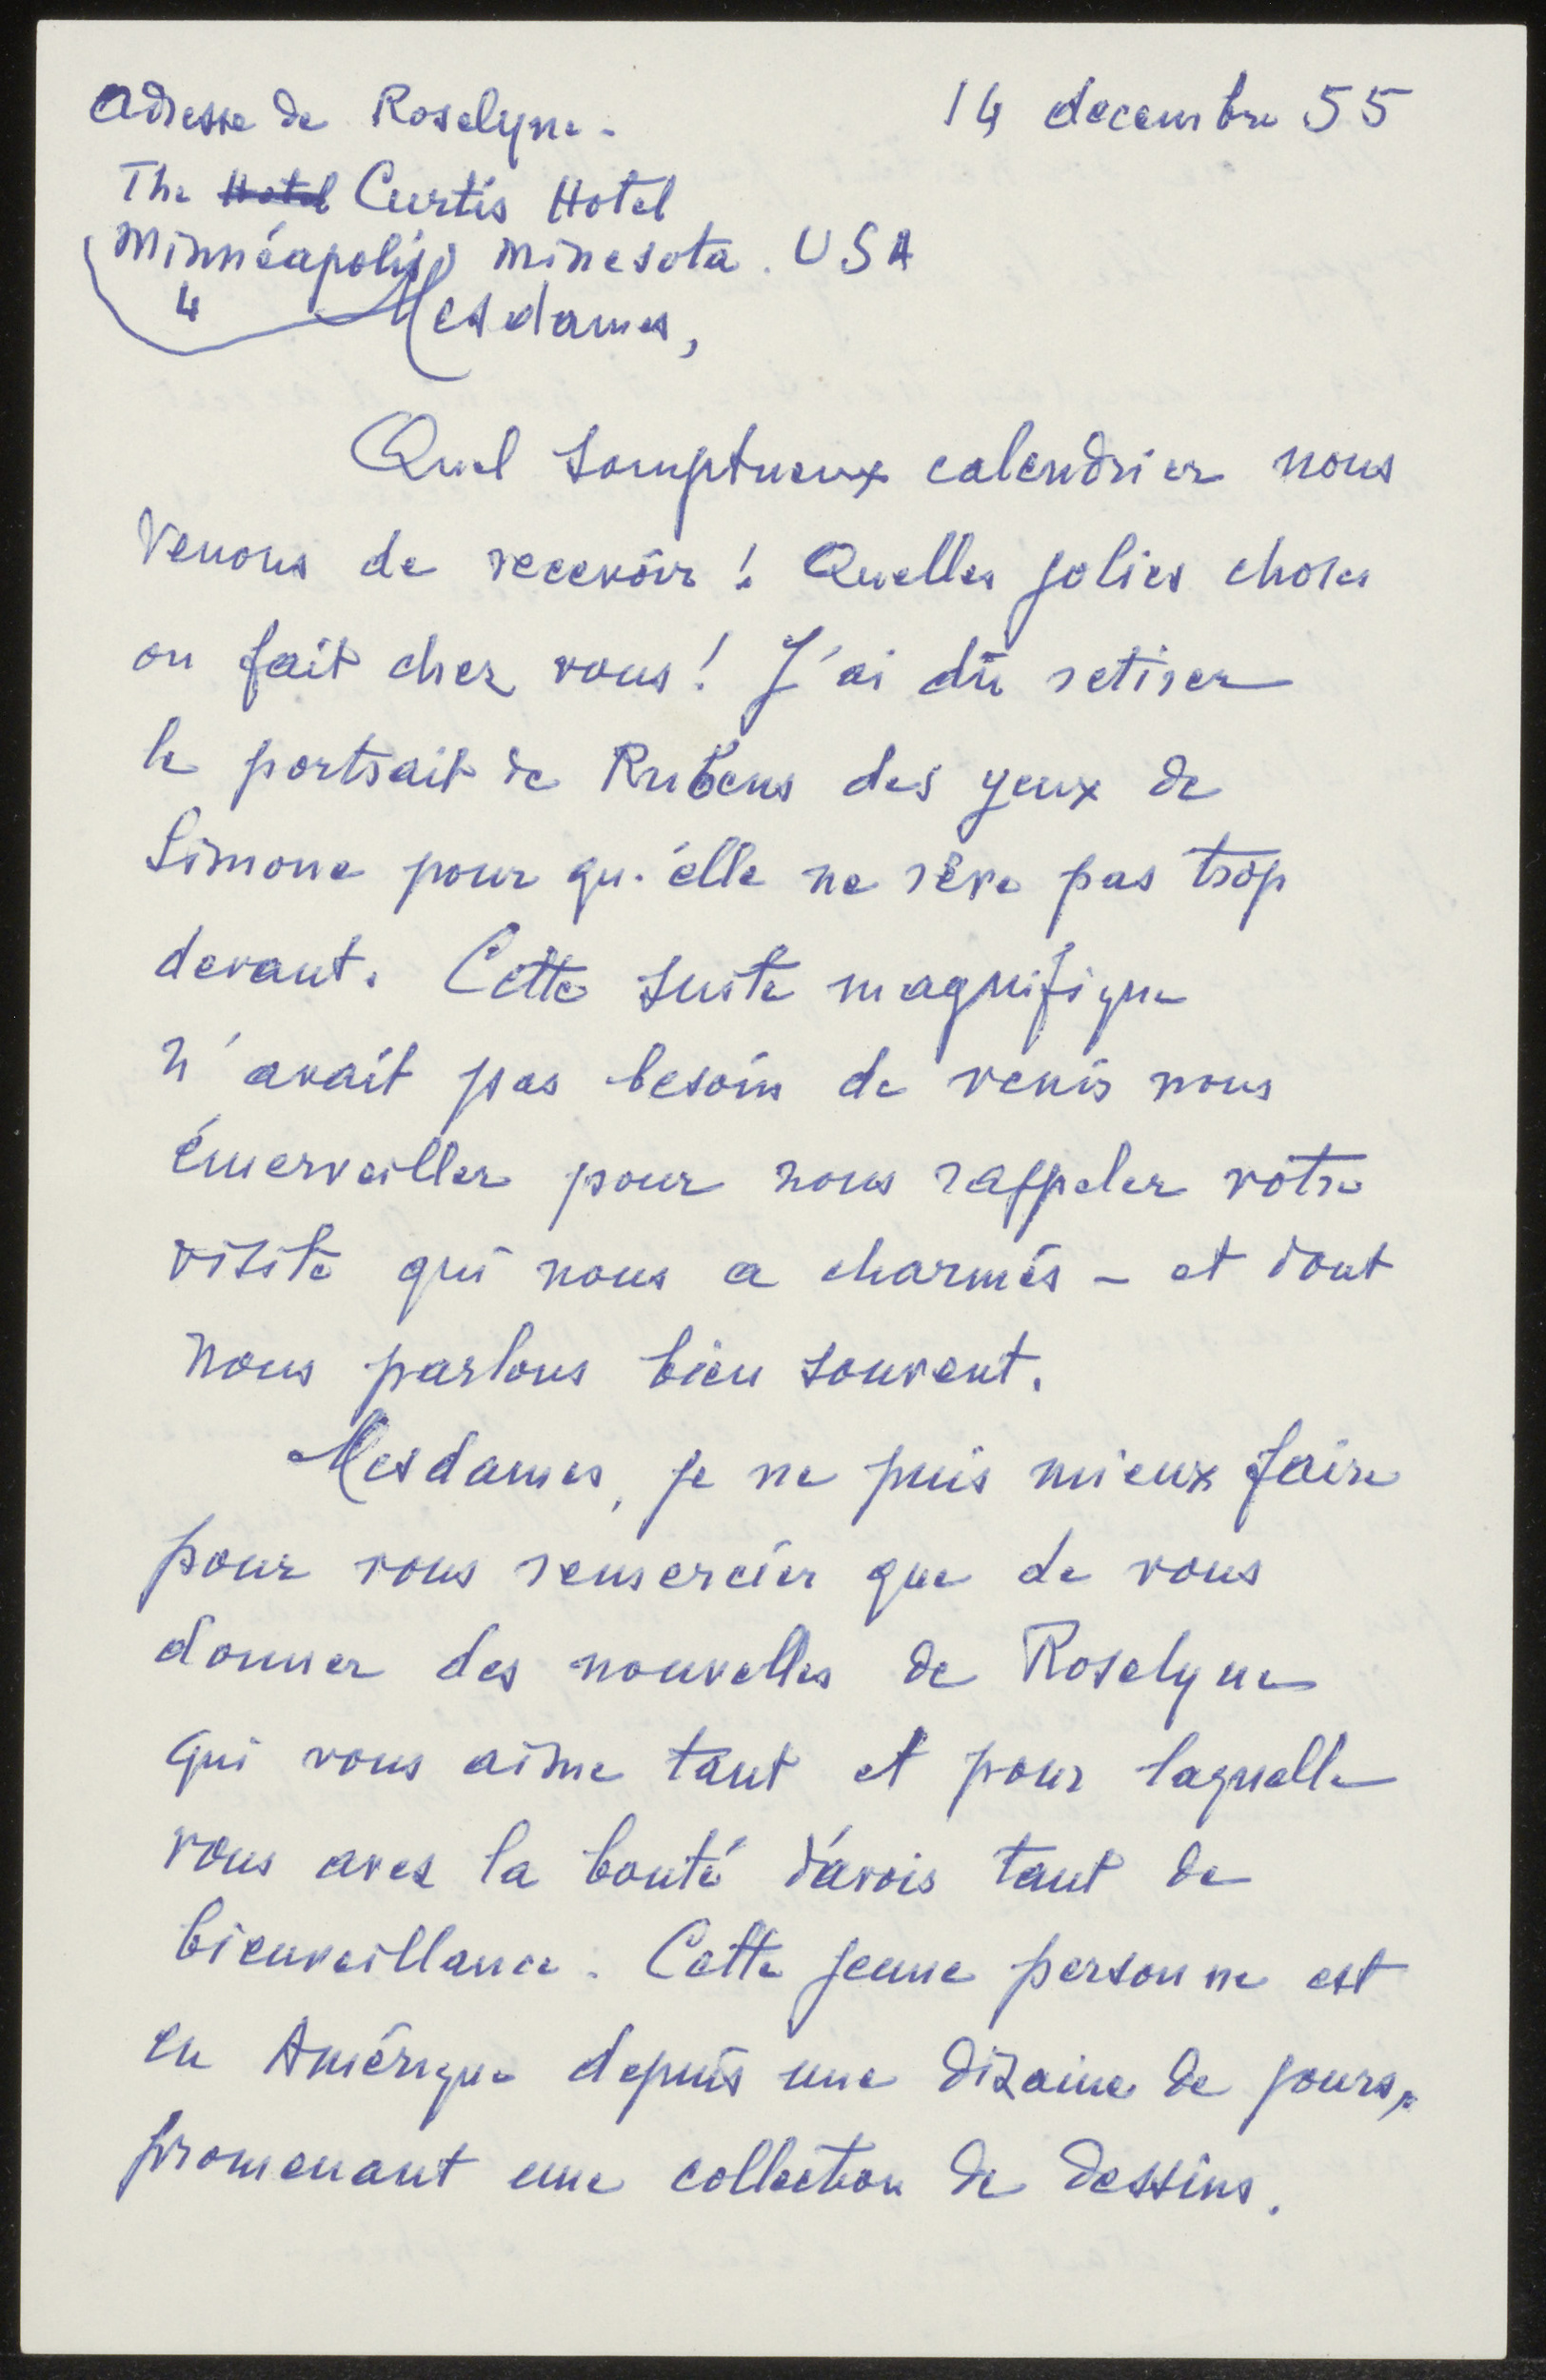 Adresse de Roselyne.
14 decembre 55
The Hotel Curtis Hotel
Minnéapolis Minesota. USA
4
Mesdames,
Quel somptueux calendrier nous
venons de recevoir ! Quelles jolies choses
on fait chez vous ! J'ai dû retirer
le portrait de Rubens des yeux de
Simone pour qu'elle ne rêve pas trop
devant. Cette suite magnifique
n'avait pas besoin de venir nous
émerveiller pour nous rappeler votre
visite qui nous a charmés - et dont
nous parlons bien souvent.
Mesdames, je ne puis mieux faire
pour vous remercier que de vous
donner des nouvelles de Roselyne
qui vous aime tant et pour laquelle
vous avez la bonté d'avoir tant de
bienveillance. Cette jeune personne est
en Amérique depuis une dizaine de jours,
promenant une collection de dessins.